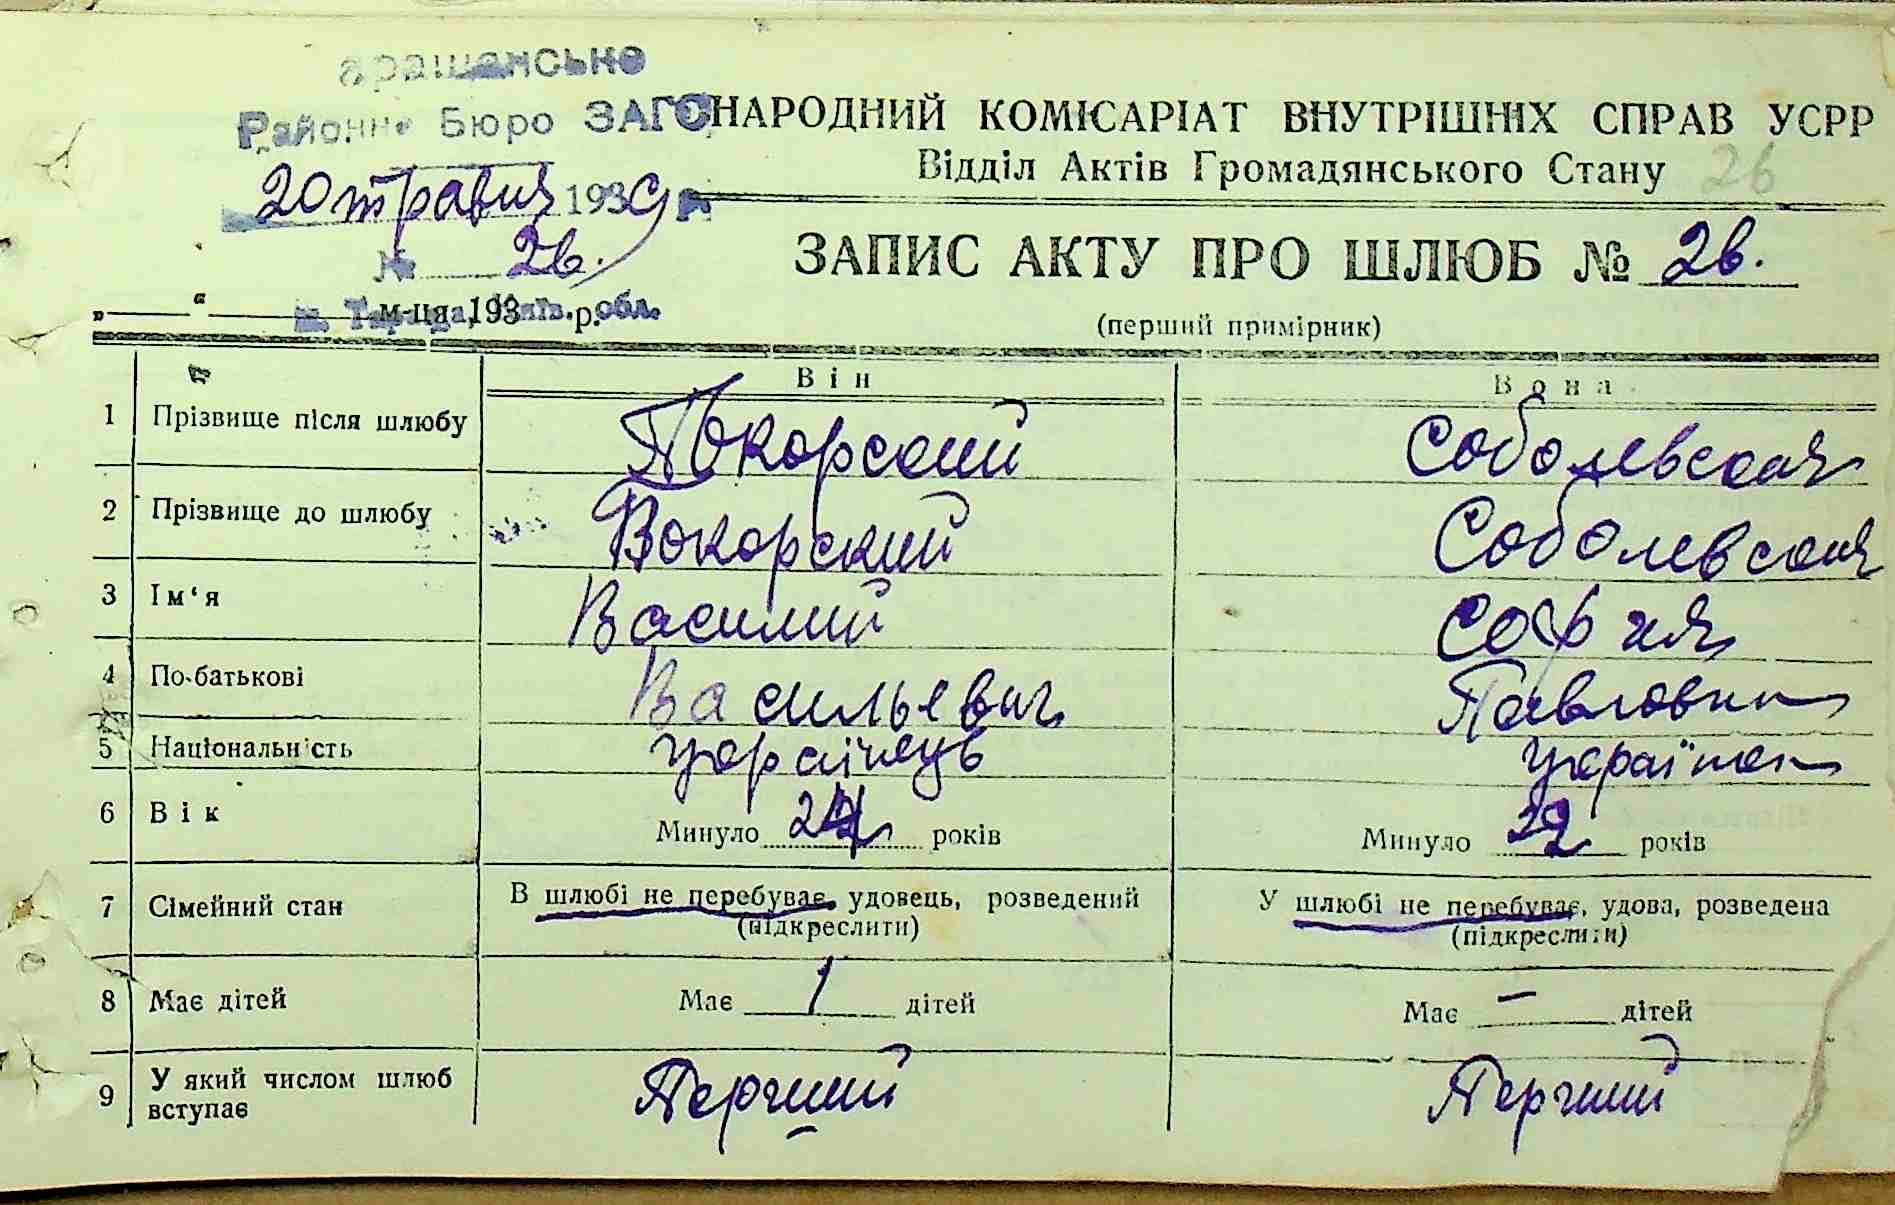 аращансько
Районне Бюро ЗАГС
НАРОДНИЙ КОМІСАРІАТ ВНУТРІШНІХ СПРАВ УСРР
Відділ Актів Громадянського Стану 26
20 травня 1939 р.
№ 26.
ЗАПИС АКТУ ПРО ШЛЮБ № 26.
„ “ м-ця 193 р.
м. Тараща, Київ. обл.
(перший примірник)
Він Вона
1 Прізвище після шлюбу Покорский Соболевская
2 Прізвище до шлюбу Покорский Соболевская
3 Ім‘я Василий София
4 По-батькові Васильевич Павловна
5 Національність українець українка
6 Вік Минуло років Минуло 22 років
7 Сімейний стан В шлюбі не перебуває, удовець, розведений У шлюбі не перебуває, удова, розведена
(підкреслити) (підкреслити)
8 Має дітей Має 1 дітей Має — дітей
9 У який числом шлюб вступає Перший Перший